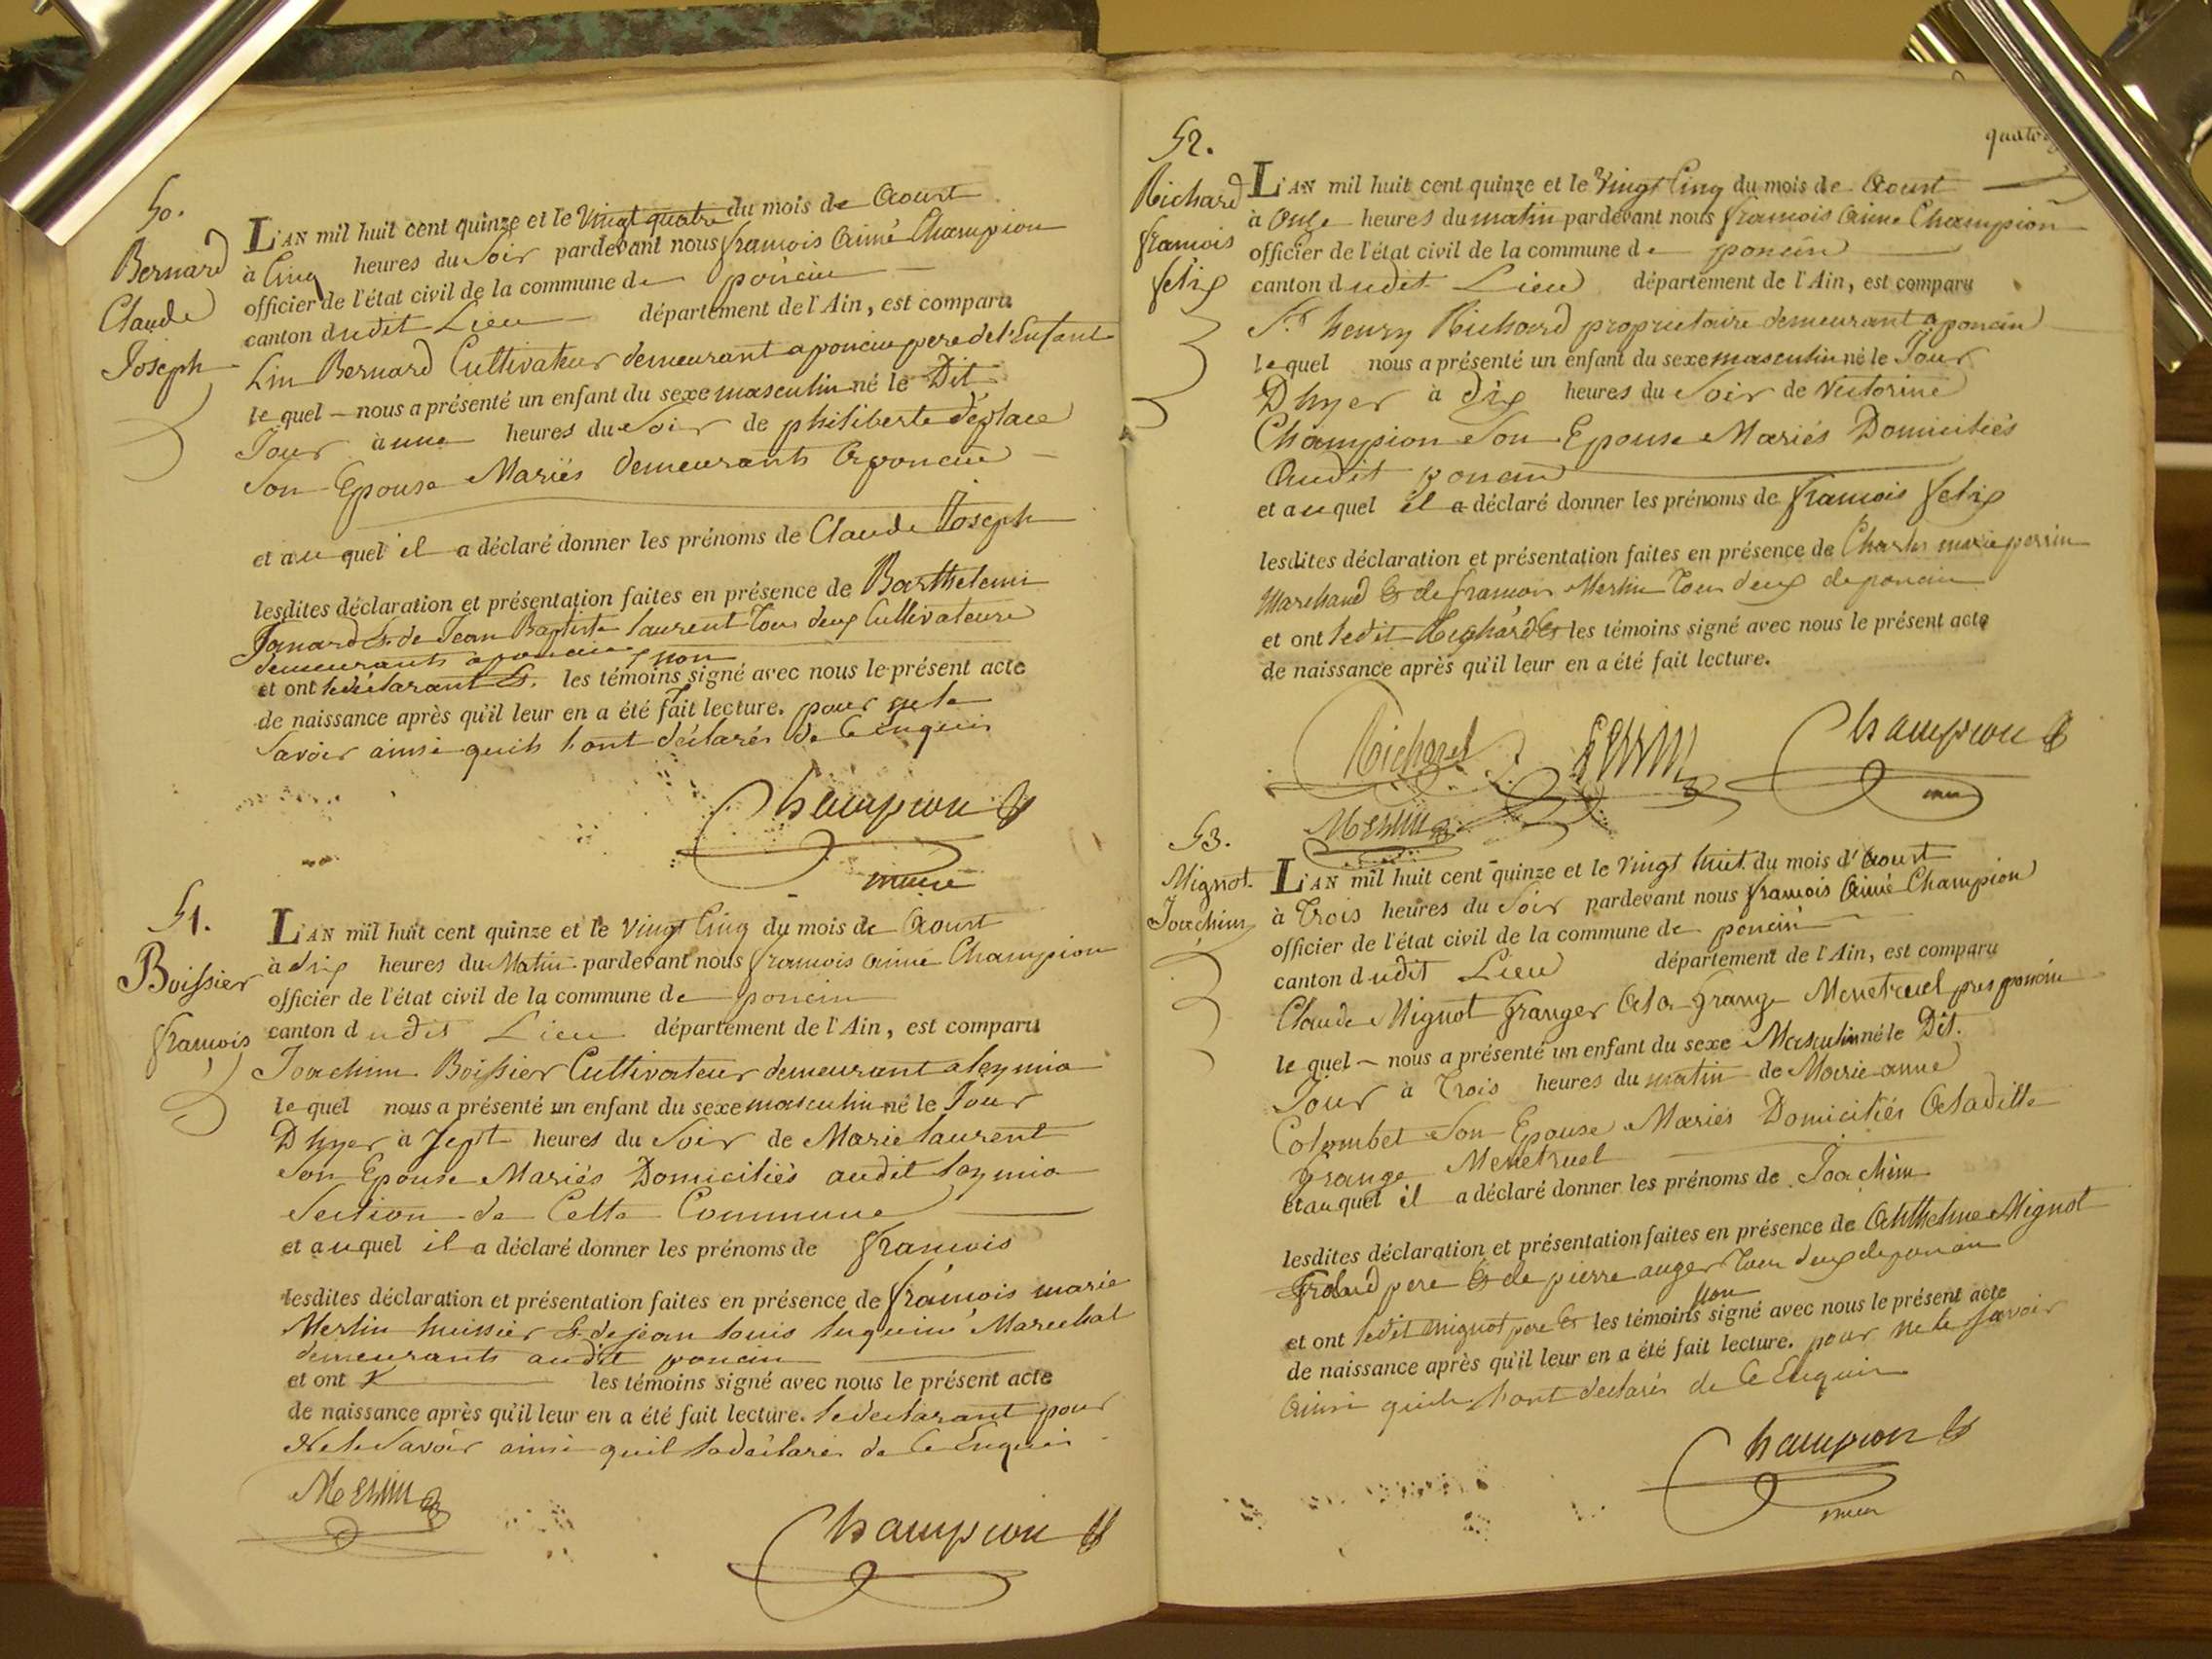 50.
Bernard
Claude
Joseph
L'AN mil huit cent quinze et le Vingt quatre du mois de Aoust
à Cinq heures du Soir pardevant nous francois Aimé Champion
officier de l'état civil de la commune de poncin
canton dudit Lieu département de l'Ain, est comparu
Lin Bernard Cultivateur demeurant a poncin pere de l'Enfant
le quel nous a présenté un enfant du sexe masculin né le Dit
Jour à une heures du Soir de philiberte deplace
Son Epouse Mariés demeurants a poncin
et au quel il a déclaré donner les prénoms de Claude Joseph
lesdites déclaration et présentation faites en présence de Barthelemi
& de Jean Baptiste laurent tous deux Cultivateurs
demeurants a poncin, non
et ont le déclarant &. les témoins signé avec nous le présent acte
de naissance après qu'il leur en a été fait lecture. pour ne le
Savoir ainsi quils l'ont déclarés de Ce enquis
Champion
maire
51.
Boissier
francois
L'AN mil huit cent quinze et le Vingt Cinq du mois de Aoust
à dix heures du Matin pardevant nous francois aimé Champion
officier de l'état civil de la commune de poncin
canton dudit Lieu département de l'Ain, est comparu
Joachim Boissier Cultivateur demeurant a leymia
le quel nous a présenté un enfant du sexe masculin né le Jour
Dhyer à Sept heures du Soir de Marie laurent
Son Epouse Mariés Domiciliés audit leymia
Section de Cette Commune
et auquel il a déclaré donner les prénoms de francois
lesdites déclaration et présentation faites en présence de francois marie
Merlin huissier & de jean louis luquine Marechal
demeurants audit poncin
et ont les témoins signé avec nous le présent acte
de naissance après qu'il leur en a été fait lecture. le declarant pour
Ne le Savoir ainsi quil la déclaré de Ce Enquis
Merlin
Champion
52.
Richard
francois
felix
L'AN mil huit cent quinze et le Vingt Cinq du mois de Aoust
à Onze heures du matin pardevant nous francois Aimé Champion
officier de l'état civil de la commune de poncin
canton dudit Lieu département de l'Ain, est comparu
Sr. henry Richard proprietaire demeurant a poncin
le quel nous a présenté un enfant du sexe masculin né le Jour
Dhyer à dix heures du Soir de Victorine
Champion Son Epouse Mariés Domiciliés
Audit poncin
et au quel il a déclaré donner les prénoms de francois felix
lesdites déclaration et présentation faites en présence de Charles marie perrin
Marchand & de francois Merlin tous deux de poncin
et ont ledit Richard & les témoins signé avec nous le présent acte
de naissance après qu'il leur en a été fait lecture.
Richard perrin Champion
maire
Merlin
53.
Mignot
Joachim
L'AN mil huit cent quinze et le Vingt huit du mois d'Aoust
à Trois heures du Soir pardevant nous francois Aimé Champion
officier de l'état civil de la commune de poncin
canton dudit Lieu département de l'Ain, est comparu
Claude Mignot Granger A la Grange Menetruel pres poncin
le quel nous a présenté un enfant du sexe Masculin né le Dit.
Jour à Trois heures du matin de Marie anne
Colombet Son Epouse Mariés Domiciliés A ladite
Grange Menetruel
et au quel il a déclaré donner les prénoms de Joachim
lesdites déclaration et présentation faites en présence de Anthelme Mignot
Grand pere & de pierre auger tous deux de poncin
non
et ont ledit mignot pere & les témoins signé avec nous le présent acte
de naissance après qu'il leur en a été fait lecture. pour ne le Savoir
Ainsi quils l'ont déclarés de Ce Enquis
Champion